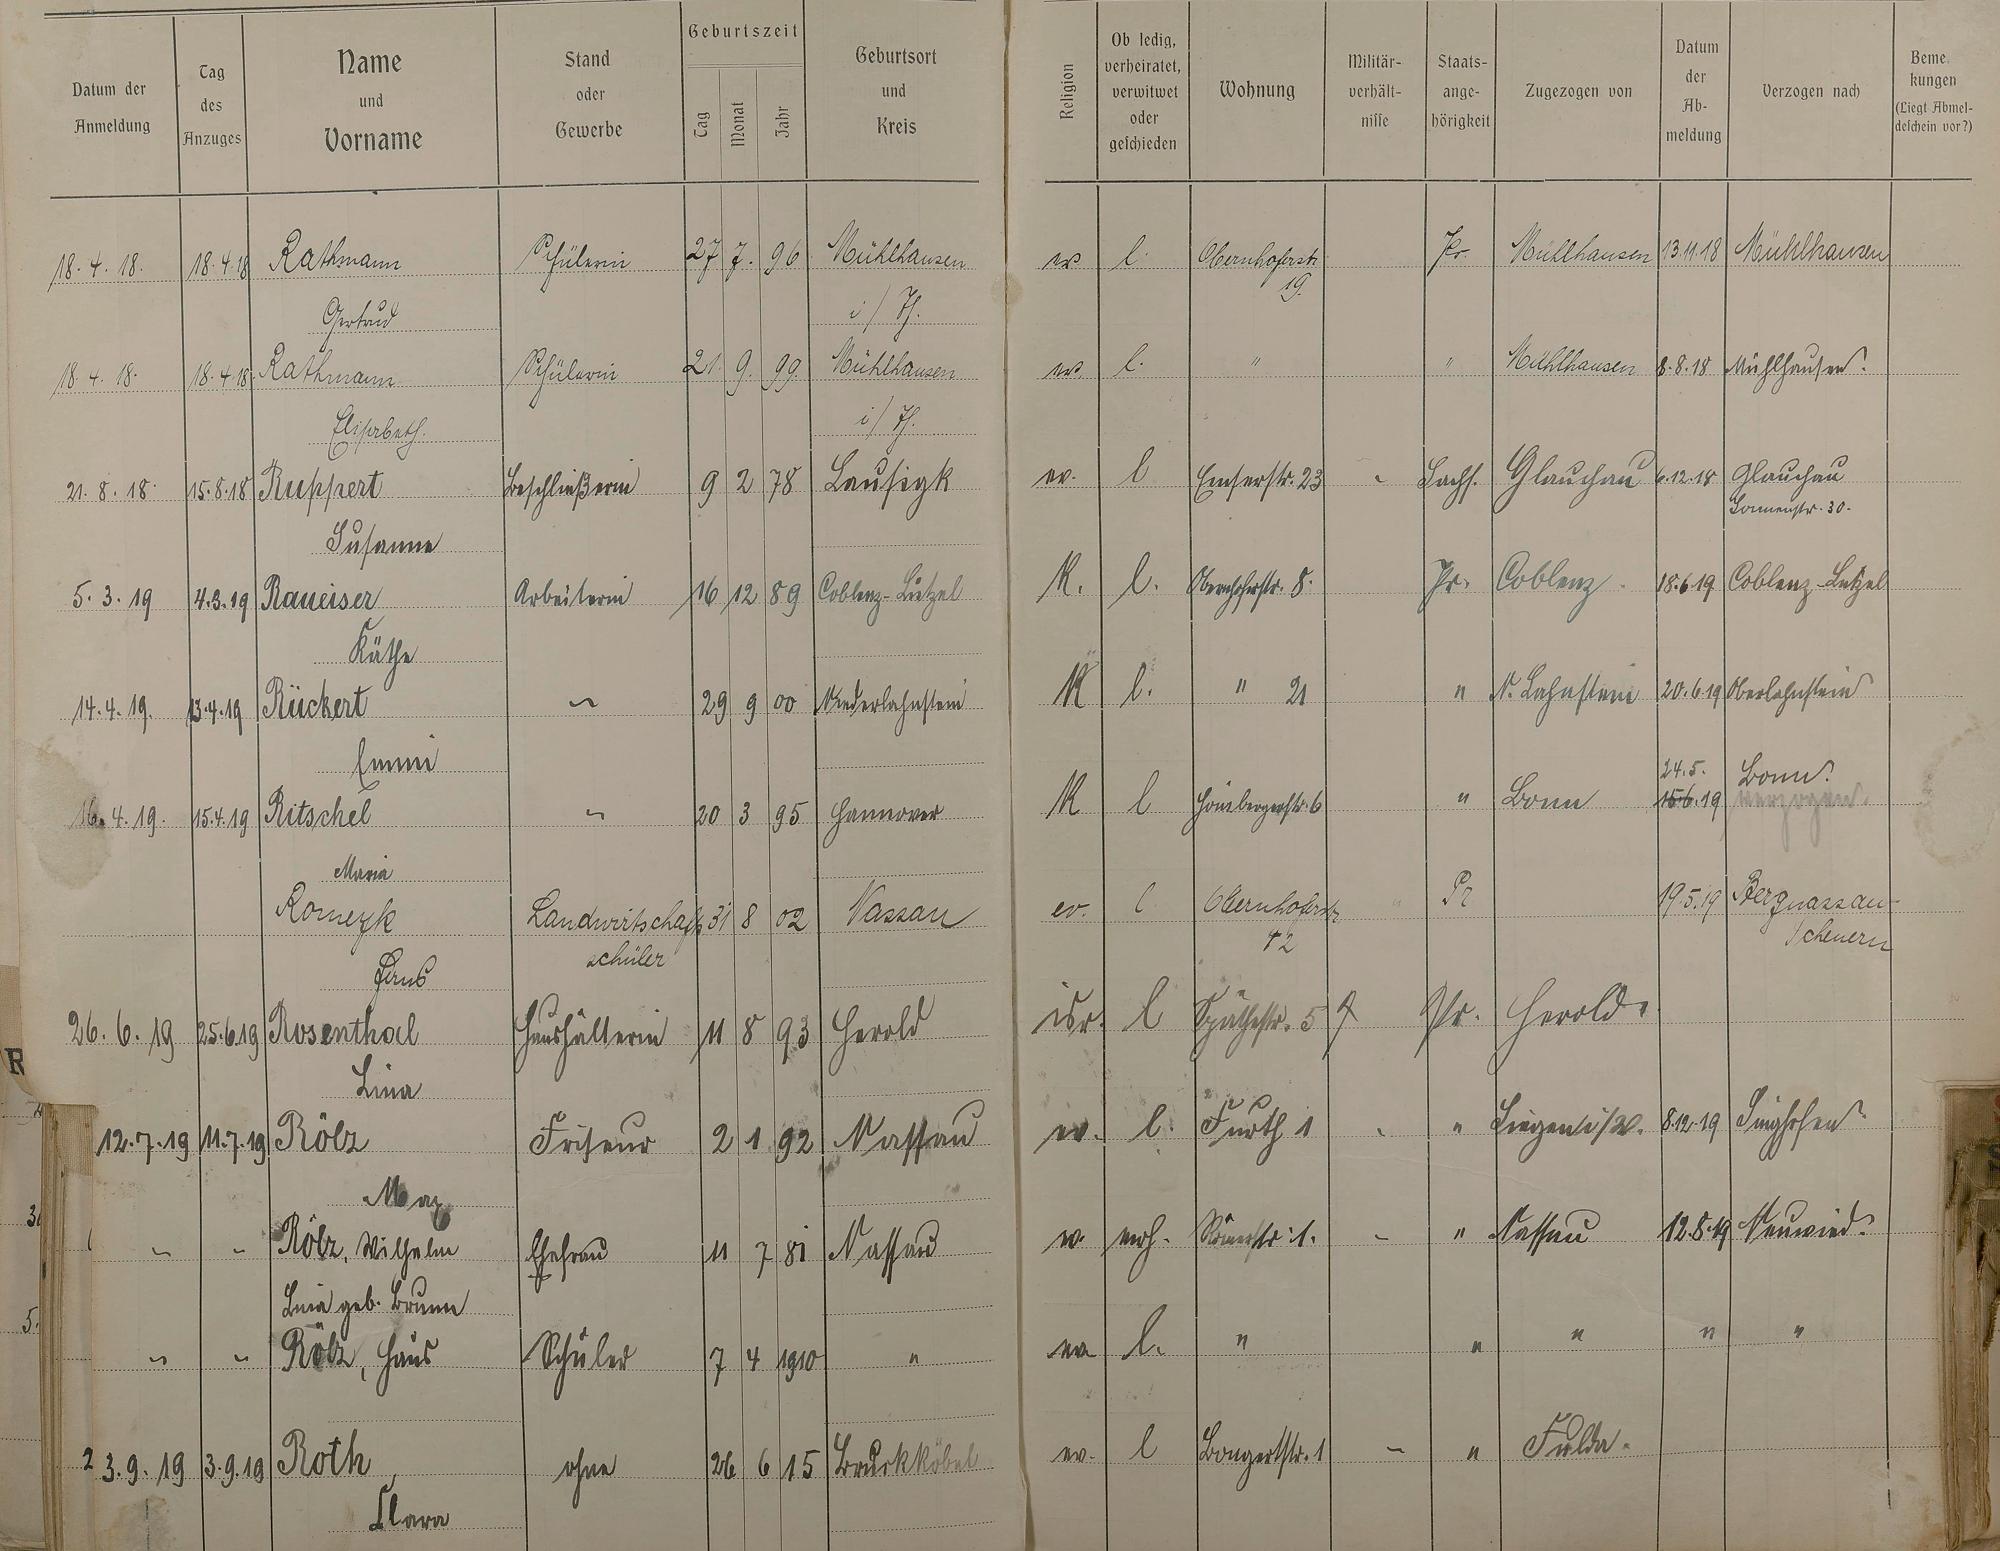 Datum der Anmeldung | Tag des Anzuges | Name und Vorname | Stand oder Gewerbe | Geburtszeit Tag Monat Jahr | Geburtsort und Kreis | Religion | Ob ledig, verheiratet, verwitwet oder geschieden | Wohnung | Militär-verhält-nisse | Staats-ange-hörigkeit | Zugezogen von | Datum der Ab-meldung | Verzogen nach | Beme. kungen (Liegt Abmel-deschein vor?)
18.4.18. 18.4.18 Rathmann Schülerin 27 7. 96 Mühlhausen ev l. Obernhoferstr. Pr. Mühlhausen 13.11.18 Mühlhausen
19.
Gertrud i/Th.
18.4.18. 18.4.18. Rathmann Schülerin 21. 9. 99. Mühlhausen ev. l. " " Mühlhausen 8.8.18 Mühlhausen.
Elisabeth. i/Th.
21.8.18. 15.8.18 Ruppert Beschließerin 9 2 78 Lausigk ev. l Emserstr. 23 - Sachs. Glauchau 6.12.18 Glauchau
Sonnenstr. 30.
Susanne
5.3.19 4.3.19 Raueiser Arbeiterin 16 12 89 Coblenz-Lützel K. l. Obernhoferstr. 8. Pr. Coblenz. 18.6.19 Coblenz-Lützel
Käthe
14.4.19. 13.4.19 Rückert ~ 29 9 00 Niederlahnstein K l. " 21 " N. Lahnstein 20.6.19 Oberlahnstein
Emmi
24.5. Bonn.
16.4.19. 15.4.19 Ritschel ~ 20 3 95 Hannover K l Hömbergerstr. 6 " Bonn 15.6.19 verzogen.
Maria
Romeyk Landwirtschafts 31 8 02 Nassau ev. l Obernhoferstr. Pr 19.5.19 Bergnassau-
schüler 42 Scheuern
Hans
26.6.19 25.6.19 Rosenthal Haushälterin 11 8 93 Herold isr. l Späthestr. 5 Pr. Herold.
Lina
12.7.19 11.7.19 Rölz Friseur 2 1 92 Nassau ev. l. Furth 1 - " Siegen i/W. 8.12.19 Singhofen.
Max
~ ~ Rölz, Wilhelm Ehefrau 11 7 81 Nassau ev. verh. Römerstr. 1. - " Nassau 12.8.19 Neuwied.
Lina geb. Brunn
~ ~ Rölz, Hans Schüler 7 4 1910 " ev l. " " " " "
23.9.19 3.9.19 Roth, ohne 26 6 15 Bruchköbel ev. l Bongertstr. 1 - " Fulda.
Clara